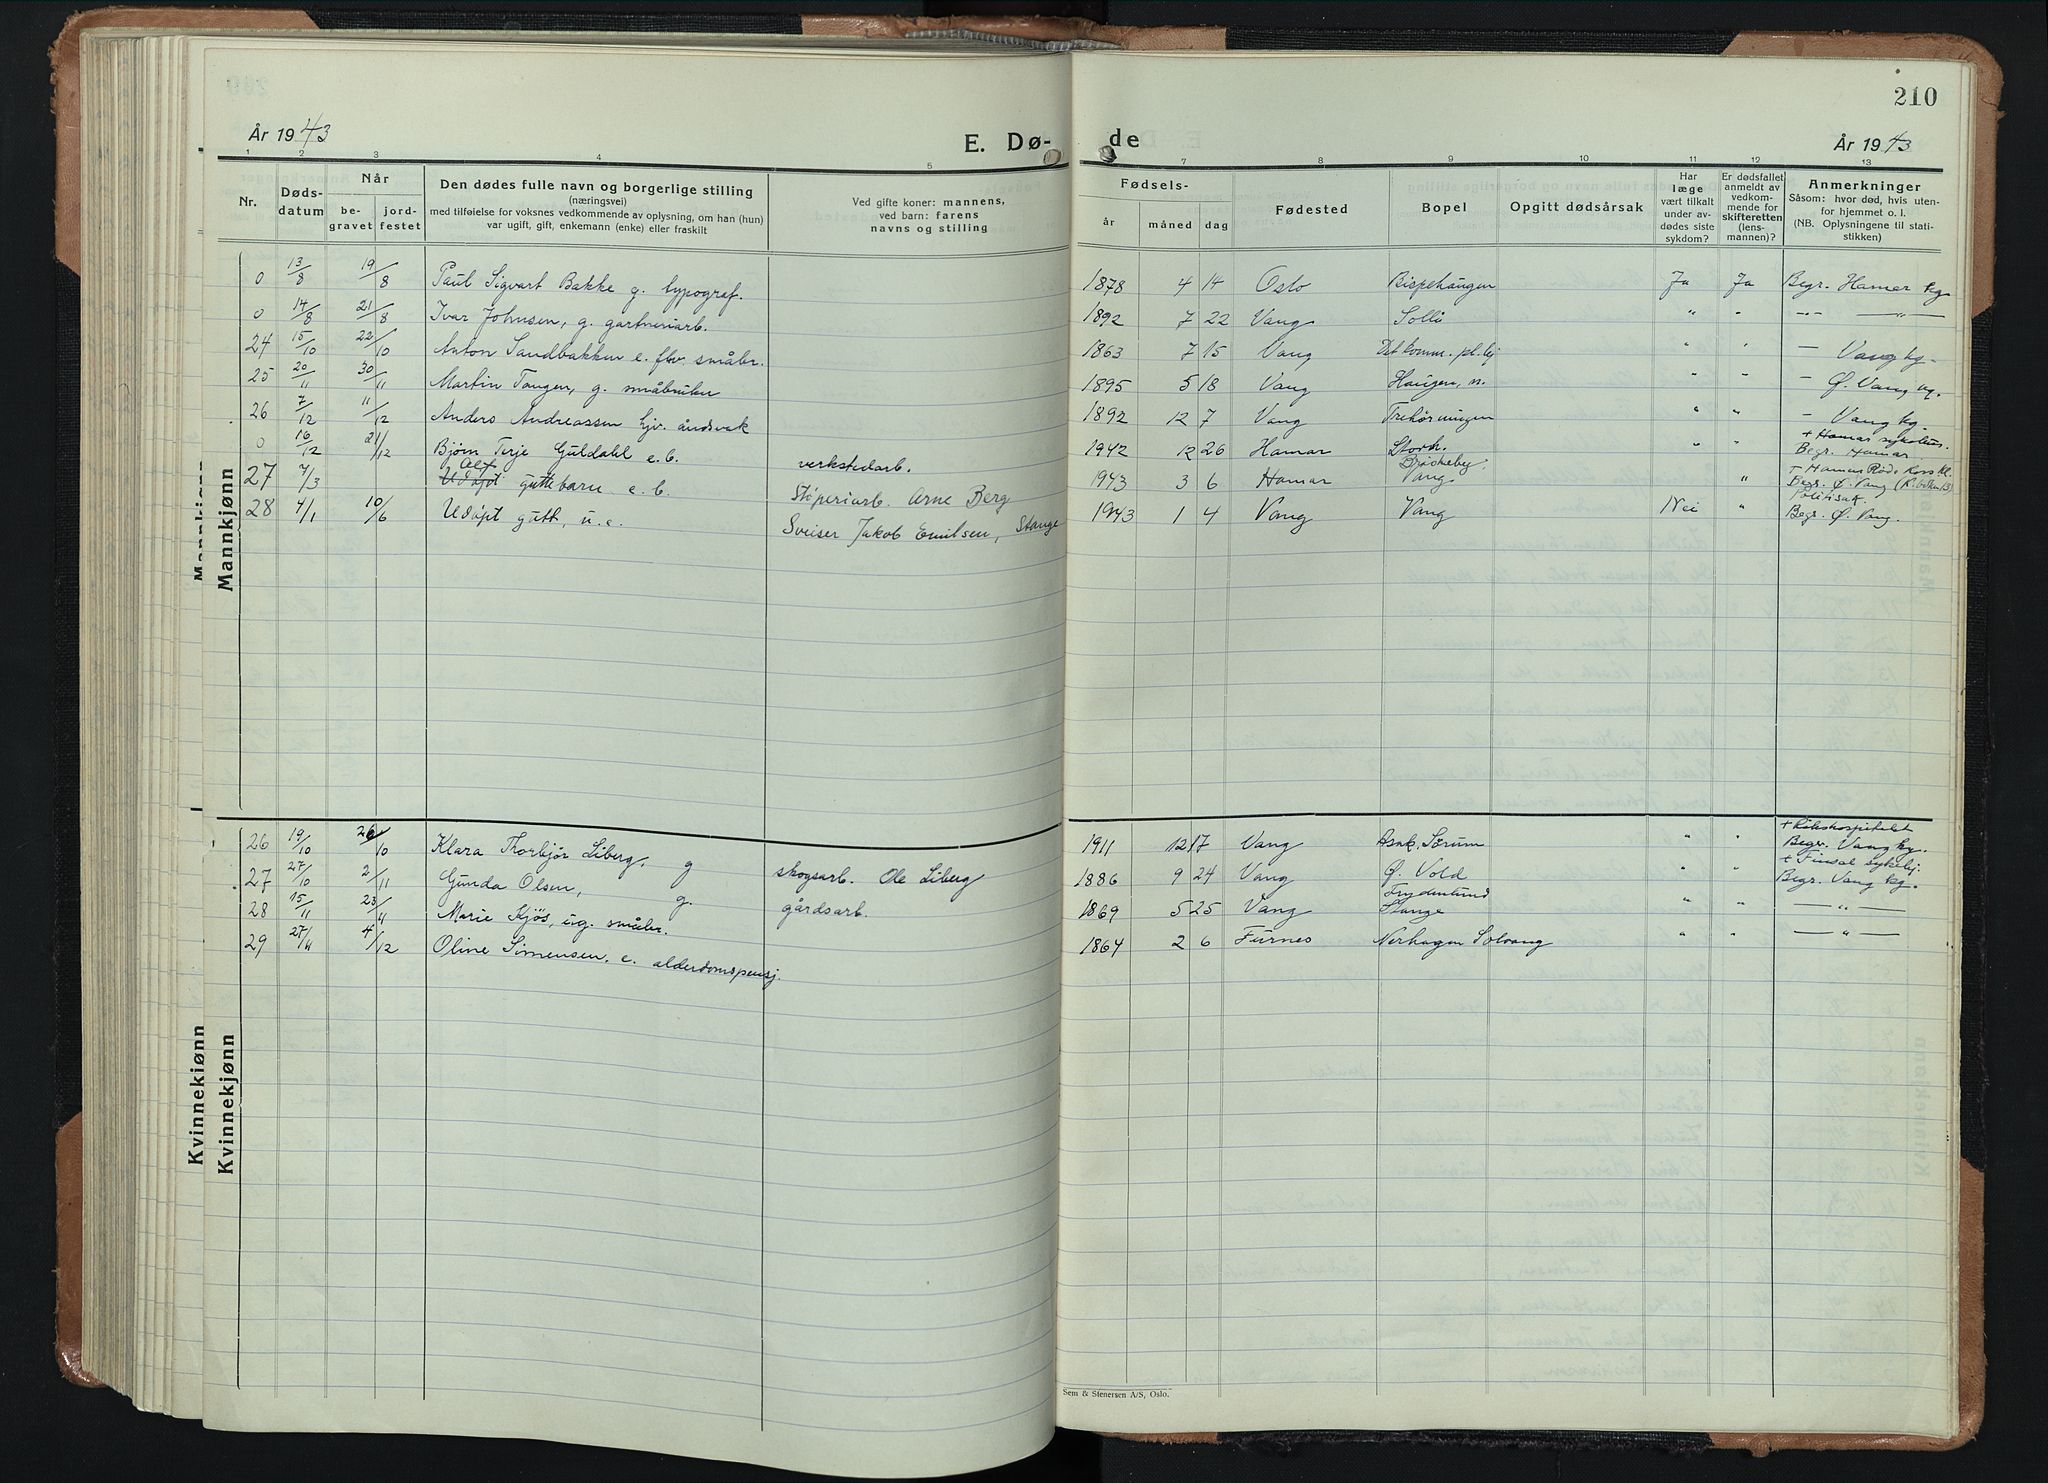 210
År 1943
E. Dø-
de
År 1943
1 2 3 4 5 7 8 9 10 11 12 13
Nr.
Døds-
datum
Når
be-
gravet
jord-
festet
Den dødes fulle navn og borgerlige stilling
(næringsvei)
med tilføielse for voksnes vedkommende av oplysning, om han (hun)
var ugift, gift, enkemann (enke) eller fraskilt
Ved gifte koner: mannens,
ved barn: farens
navns og stilling
Fødsels-
år måned dag
Fødested
Bopel
Opgitt dødsårsak
Har
læge
vært tilkalt
under av-
dødes siste
sykdom?
Er dødsfallet
anmeldt av
vedkom-
mende for
skifteretten
(lens-
mannen)?
Anmerkninger
Såsom: hvor død, hvis uten-
for hjemmet o. l.
(NB. Oplysningene til stati-
stikken)
Mannkjønn
Mannkjønn
0 13/8 19/8 Paul Sigvart Bakke g. typograf. 1878 4 14 Oslo Bispehaugen Ja Ja Begr. Hamar kg
0 14/8 21/8 Ivar Johnsen, g. gartneriarb. 1892 7 22 Vang Solli " " -"- -"-
24 15/10 22/10 Anton Sandbakken e. fhv. småbr. 1863 7 15 Vang Det komm. pl.hj " " - Vang kg.
25 20/11 30/11 Martin Tangen, g. småbruker 1895 5 18 Vang Haugen, n. " " - Ø. Vang kg.
26 7/12 11/12 Anders Andreassen hjv. åndsvak 1892 12 7 Vang Trehørningen " " - Vang kg.
0 16/12 21/12 Bjørn Terje Guldahl e.b. verkstedarb. 1942 12 26 Hamar Storh. " " + Hamar sykehus.
Begr. Hamar.
Alf
27 7/3 Udøpt guttebarn e.b. Støperiarb. Arne Berg 1943 3 6 Hamar Vang " + Hamar Røde Kors kl.
Begr. Ø. Vang
28 4/1 10/6 Udøpt gutt, u.e. Sveiser Jakob Emilsen, Stange 1943 1 4 Vang Vang Nei "
Begr. Ø. Vang.
Kvinnekjønn
Kvinnekjønn
26 19/10 26/10 Klara Thorbjør Liberg, g skogsarb. Ole Liberg 1911 12 17 Vang Asak, Sørum " " + Rikshospitalet
Begr. Vang kg.
27 27/10 2/11 Gunda Olsen, g. gårdsarb. 1886 9 24 Vang Ø. Vold " " + Finsal sykehj.
Begr. Vang kg.
28 15/11 23/11 Marie Kjøs, ug. småbr. 1869 5 25 Vang Frydenlund
Stange " " -"-
29 27/11 4/12 Oline Simensen, e. alderdomspensj. 1864 2 6 Furnes Nerhagen Solvang " " -"-
Sem & Stenersen A/S, Oslo.